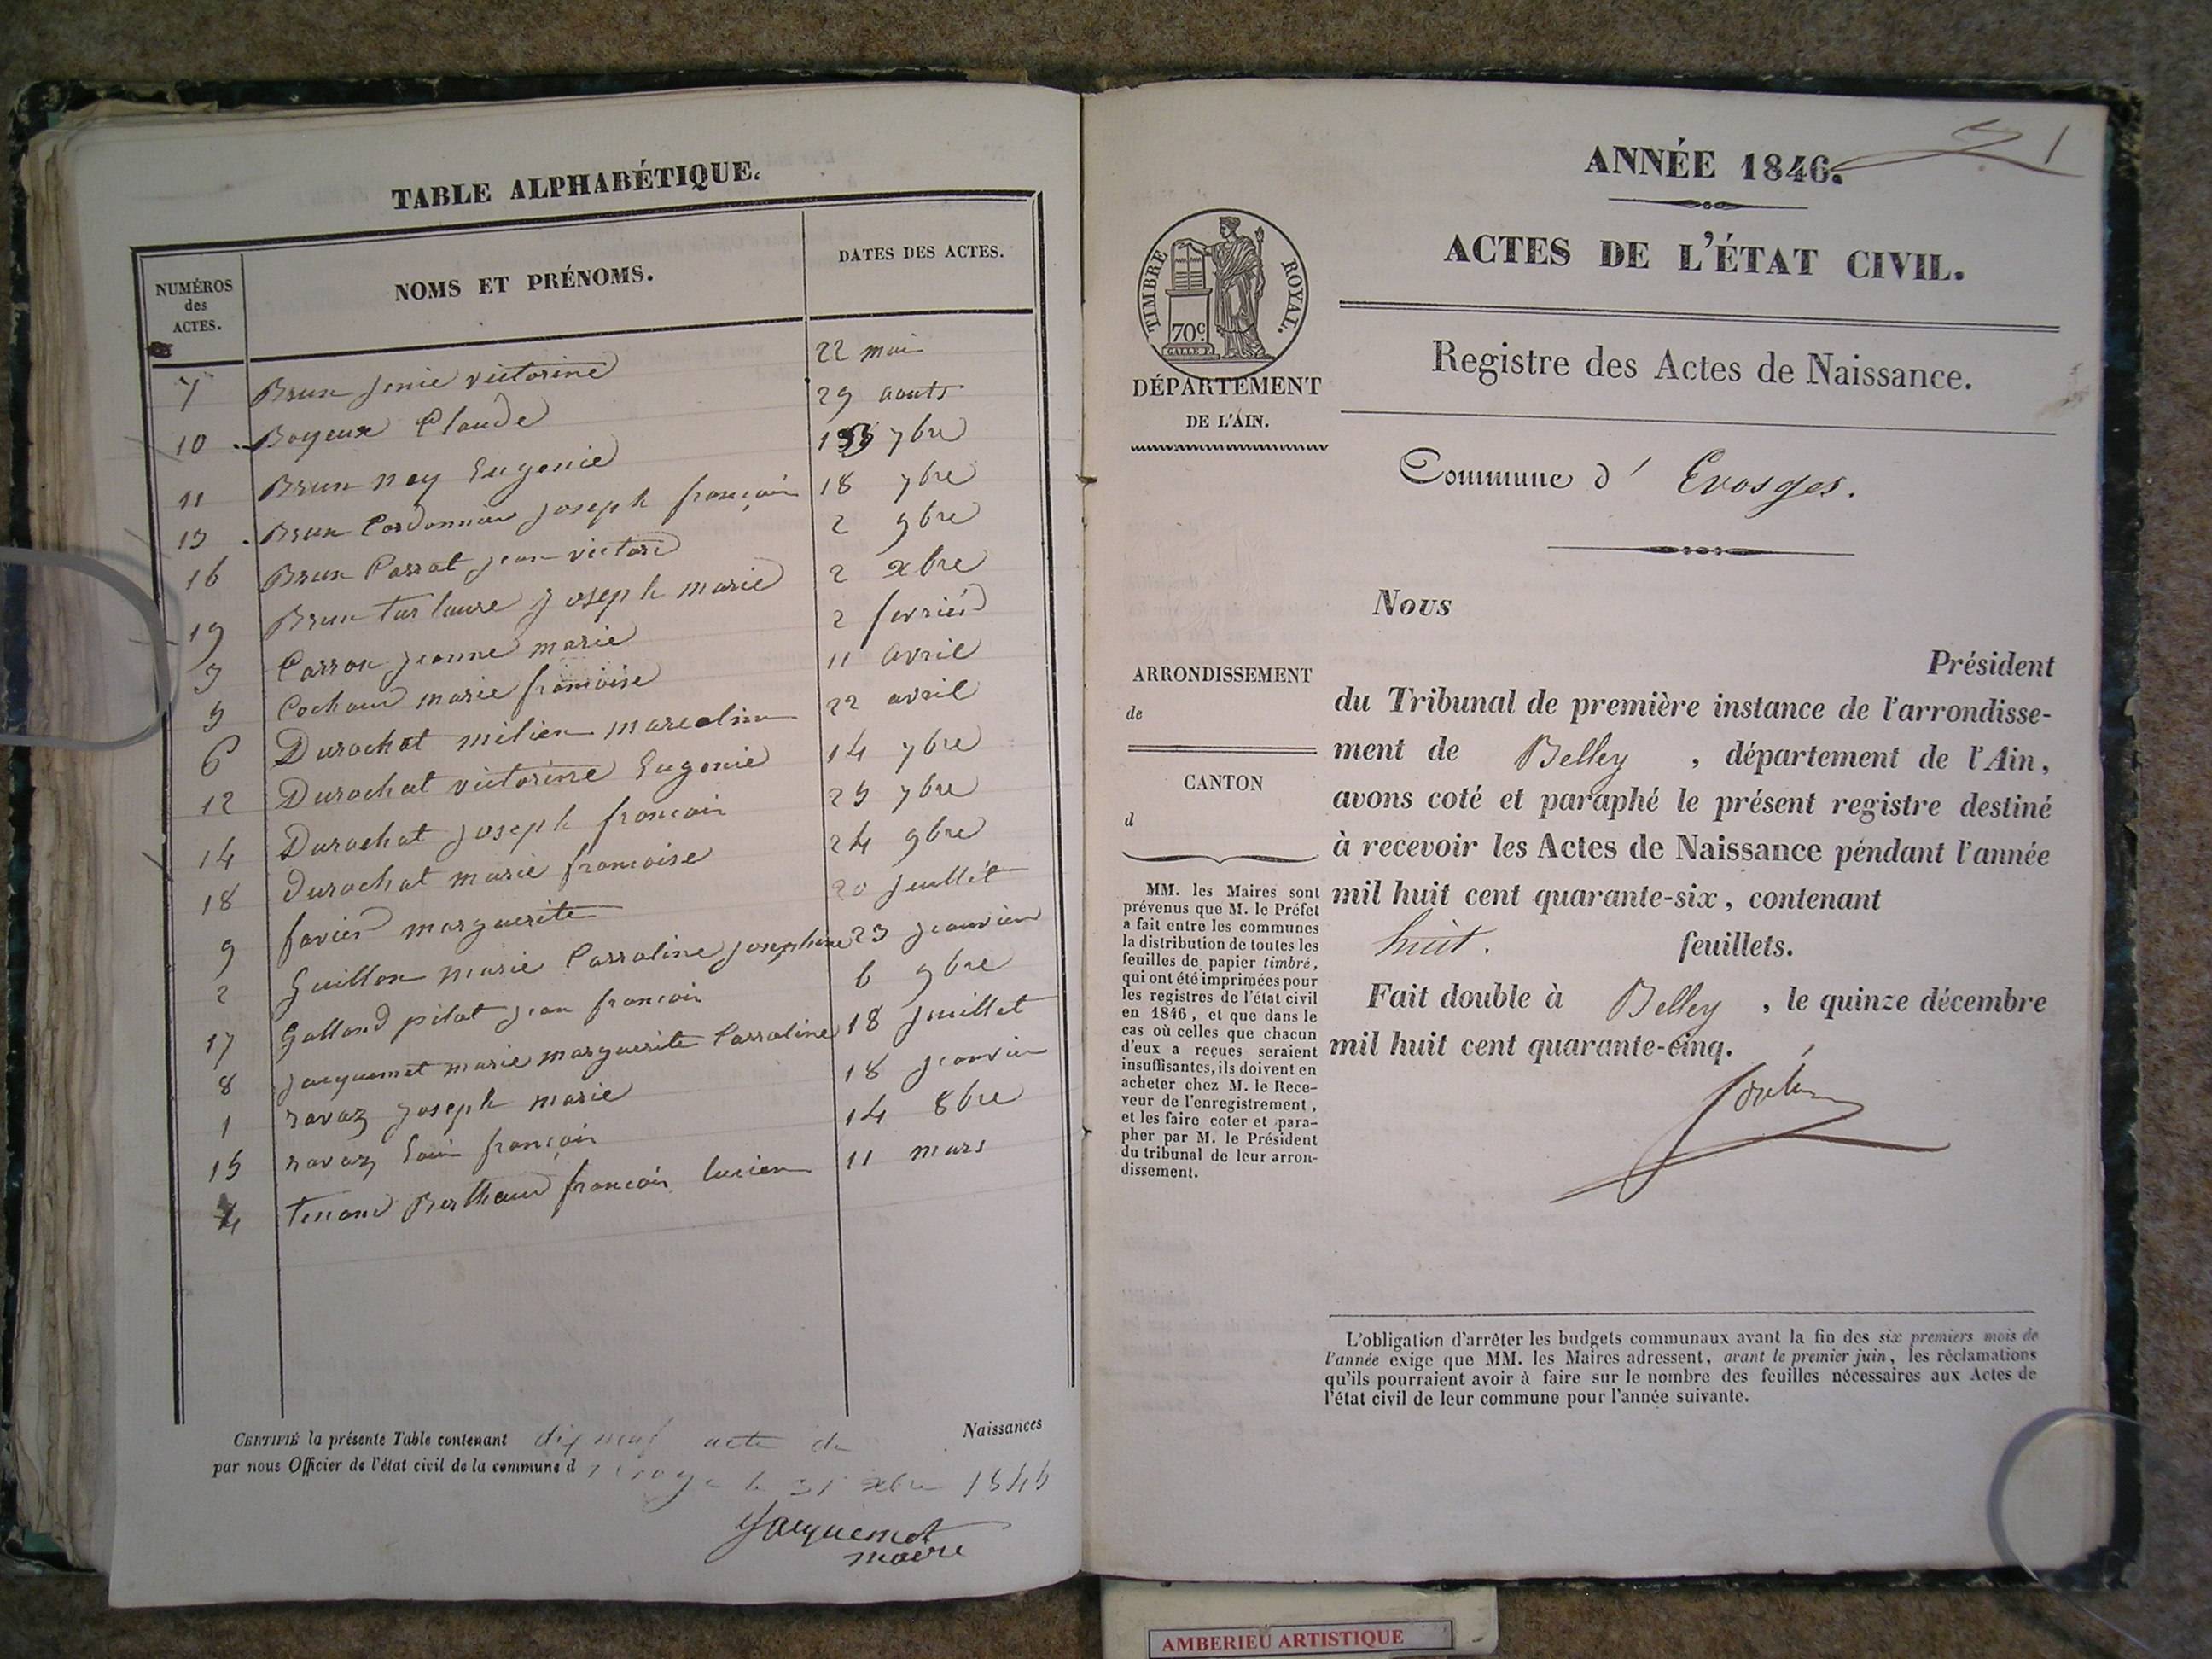 TABLE ALPHABÉTIQUE.
NUMÉROS
des
ACTES.
NOMS ET PRÉNOMS.
DATES DES ACTES.
7 Brun Jenie victorine 22 mai
10 Boyeux Claude 29 aouts
11 Brun Ney Eugenie 7bre
13 Brun Cordonnier Joseph françois 18 7bre
16 Brun Carrat jean victore 2 9bre
19 Brun Joseph marie 2 xbre
3 Carron jeanne marie 2 fevrier
5 marie francoise 11 avril
6 Durochat milien marcelin 22 avril
12 Durochat victorine Eugenie 14 7bre
14 Durochat Joseph francois 25 7bre
18 Durochat marie francoise 24 9bre
9 favier marguerite 20 Juillet
2 Guillon marie Carroline Josephine 23 jeanvier
17 Galland pilat jean francois 6 9bre
8 Jacquemet marie marguerite Carroline 18 Juillet
1 ravaz Joseph marie 18 jeanvier
15 ravaz Louis françois 14 8bre
4 tenand Berthaud francois lucien 11 mars
CERTIFIÉ la présente Table contenant dix neuf acte de Naissances
par nous Officier de l'état civil de la commune d le 31 xbre 1845
Jacquemet
maire
ANNÉE 1846.
1
ACTES DE L'ÉTAT CIVIL.
TIMBRE ROYAL.
70c
DÉPARTEMENT
DE L'AIN.
Registre des Actes de Naissance.
Commune d' Evosges.
Nous
Président
ARRONDISSEMENT
de
CANTON
d
du Tribunal de première instance de l'arrondisse-
ment de Belley , département de l'Ain,
avons coté et paraphé le présent registre destiné
à recevoir les Actes de Naissance péndant l'année
mil huit cent quarante-six, contenant
huit. feuillets.
Fait double à Belley , le quinze décembre
mil huit cent quarante-cinq.
MM. les Maires sont
prévenus que M. le Préfet
a fait entre les communes
la distribution de toutes les
feuilles de papier timbré,
qui ont été imprimées pour
les registres de l'état civil
en 1846, et que dans le
cas où celles que chacun
d'eux a reçues seraient
insuffisantes, ils doivent en
acheter chez M. le Rece-
veur de l'enregistrement,
et les faire coter et para-
pher par M. le Président
du tribunal de leur arron-
dissement.
L'obligation d'arrêter les budgets communaux avant la fin des six premiers mois de
l'année exige que MM. les Maires adressent, avant le premier juin, les réclamations
qu'ils pourraient avoir à faire sur le nombre des feuilles nécessaires aux Actes de
l'état civil de leur commune pour l'année suivante.
AMBERIEU ARTISTIQUE